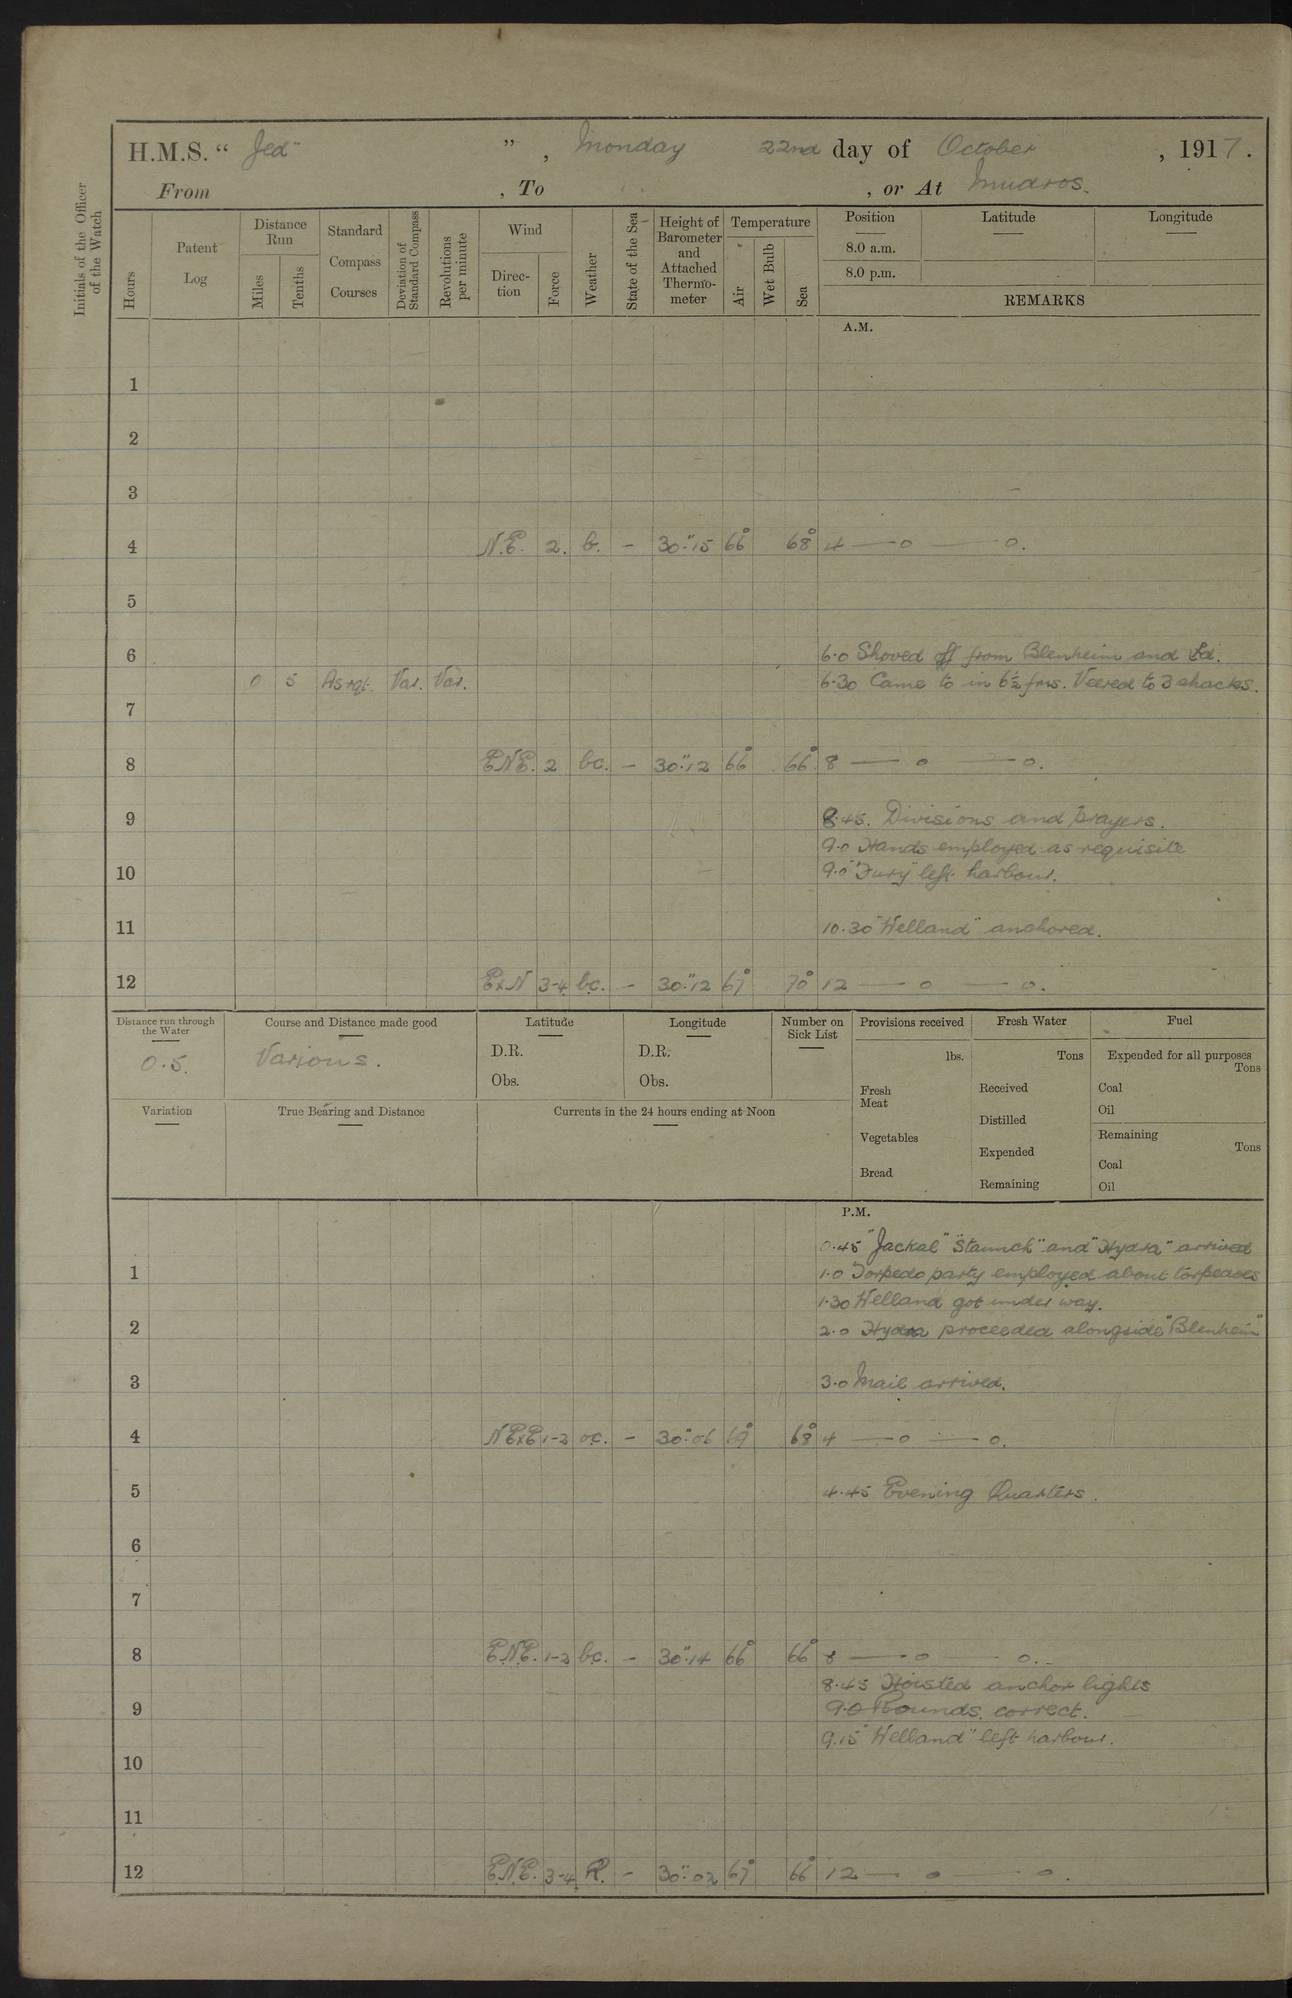 H.M.S. “ Jed” ” , Monday 22nd day of October , 1917.
From , To , or At Mudros.
Initials of the Officer of the Watch
Hours
Patent Log
Distance Run
Miles
Tenths
Standard Compass Courses
Deviation of Standard Compass
Revolutions per minute
Wind
Direc-tion
Force
Weather
State of the Sea
Height of Barometer and Attached Thermo-meter
Temperature
Air
Wet Bulb
Sea
Position Latitude Longitude
8.0 a.m.
8.0 p.m.
REMARKS
A.M.
1
2
3
4 N.E. 2. b. – 30".15 66° 68° 4 — o — o.
5
6 6.0 Shoved off from Blenheim and
0 5 As rqt. Var. Var. 6.30 Came to in 6½ fms. Veered to 3 shackles.
7
8 ENE. 2 bc. – 30".12 66° 66° 8 — o — o.
9 8.45. Divisions and prayers.
9.0 Hands employed as requisite
10 9.0 "Fury" left harbour.
11 10.30 "Welland" anchored.
12 ExN 3-4 bc. – 30".12 67° 70° 12 — o — o.
Distance run through the Water
0.5.
Course and Distance made good
Various.
Latitude
D.R.
Obs.
Longitude
D.R.
Obs.
Number on Sick List
Provisions received
lbs.
Fresh Meat
Vegetables
Bread
Fresh Water
Tons
Received
Distilled
Expended
Remaining
Fuel
Expended for all purposes
Tons
Coal
Oil
Remaining
Tons
Coal
Oil
Variation
True Bearing and Distance
Currents in the 24 hours ending at Noon
P.M.
0.45 "Jackal" "Staunch" and "Hydra" arrived
1 1.0 Torpedo party employed about torpedoes
1.30 Welland got under way.
2 2.0 Hydra proceeded alongside "Blenheim"
3 3.0 Mail arrived.
4 NExE 1-2 oc. – 30".06 69° 68° 4 — o — o.
5 4.45 Evening Quarters.
6
7
8 E.N.E. 1-2 bc. – 30".14 66° 66° 8 — o — o.
8.45 Hoisted anchor lights
9 9.0 Rounds. correct.
9.15 "Welland" left harbour.
10
11
12 E.N.E. 3-4 R. – 30".02 67° 66° 12 — o — o.